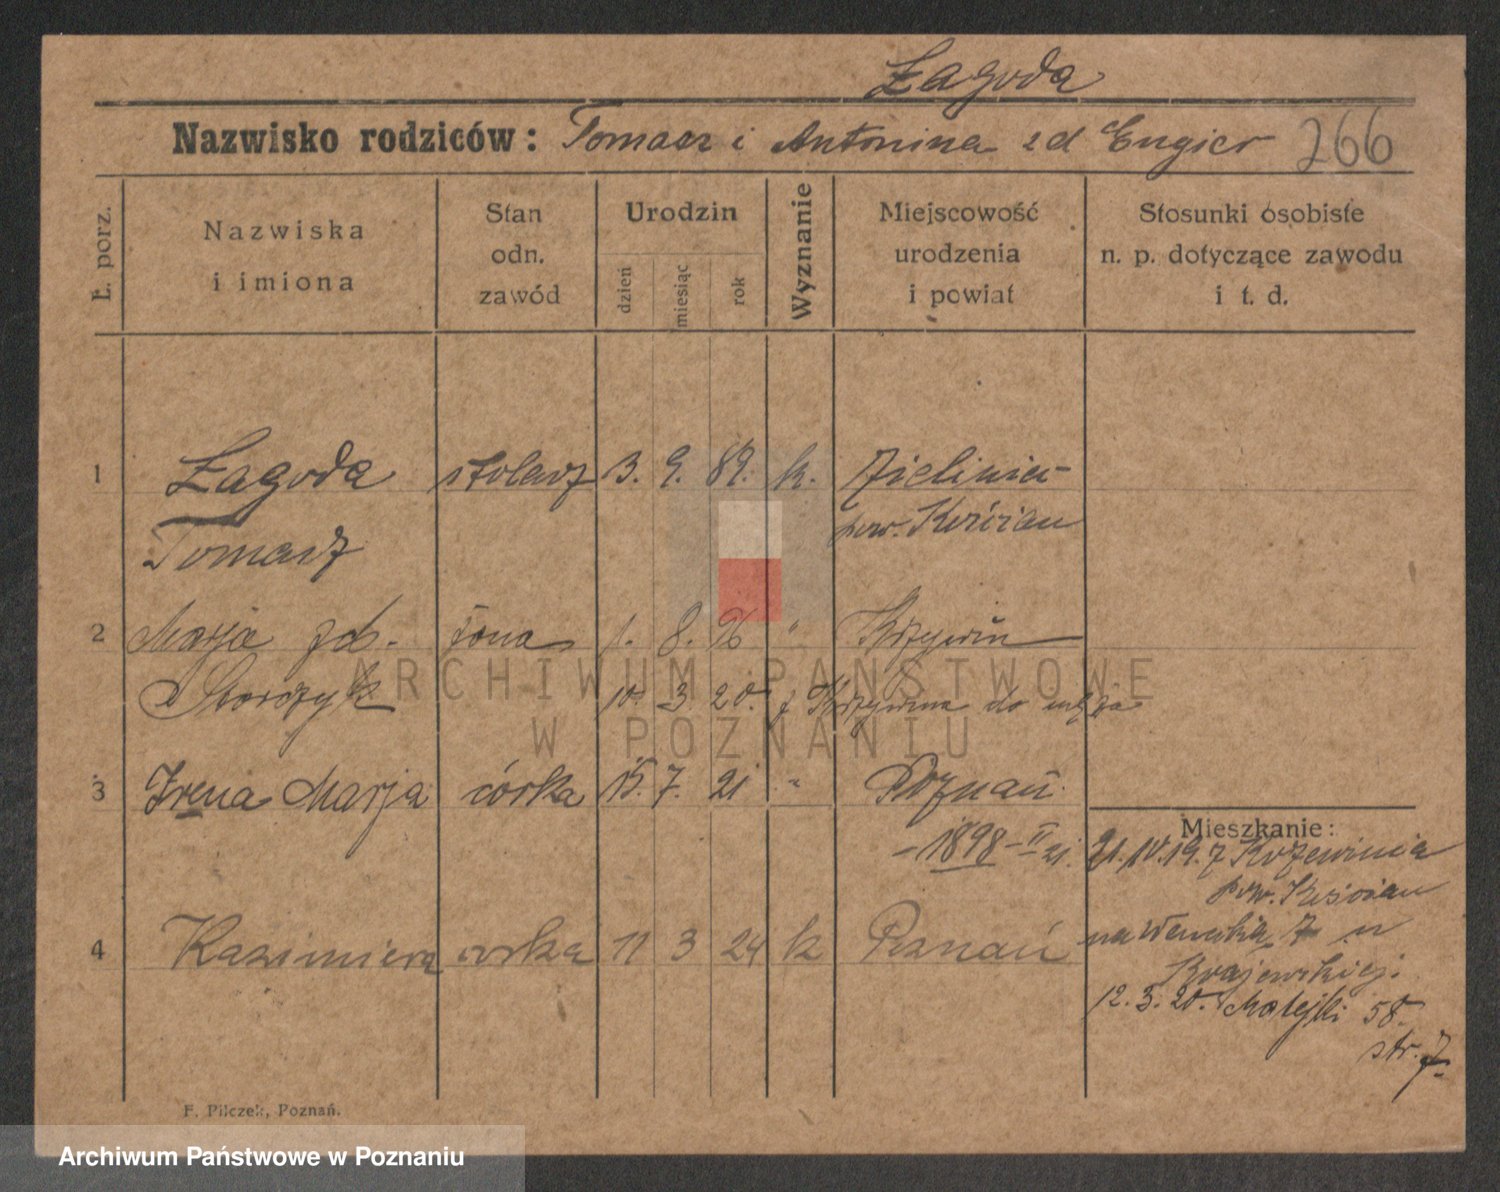 Łagoda
Nazwisko rodziców: Tomasz i Antonina zd Engier 266
Ł. porz.
Nazwiska
i imiona
Stan
odn.
zawód
Urodzin
dzień
miesiąc
rok
Wyznanie
Miejscowość
urodzenia
i powiat
Stosunki osobiste
n. p. dotyczące zawodu
i t. d.
1 Łagoda stolarz 3. 9. 89. k.
Tomasz pow. Kościan
2 Marja zd. żona 1. 8. 96 " Krzywiń
10. 3. 20. z Krzywina do męża
ARCHIWUM PAŃSTWOWE
W POZNANIU
3 Irena Marja córka 15. 7. 21 " Poznań
- 1898 - II 21.
Mieszkanie:
21. 10. 19. z Krzewinia
pow. Kościan
7 u
Krajewskiej.
4 Kazimiera córka 11 3 24 k Poznań
12. 3. 20. Matejki 58.
str. 7.
F. Pilczek, Poznań.
Archiwum Państwowe w Poznaniu